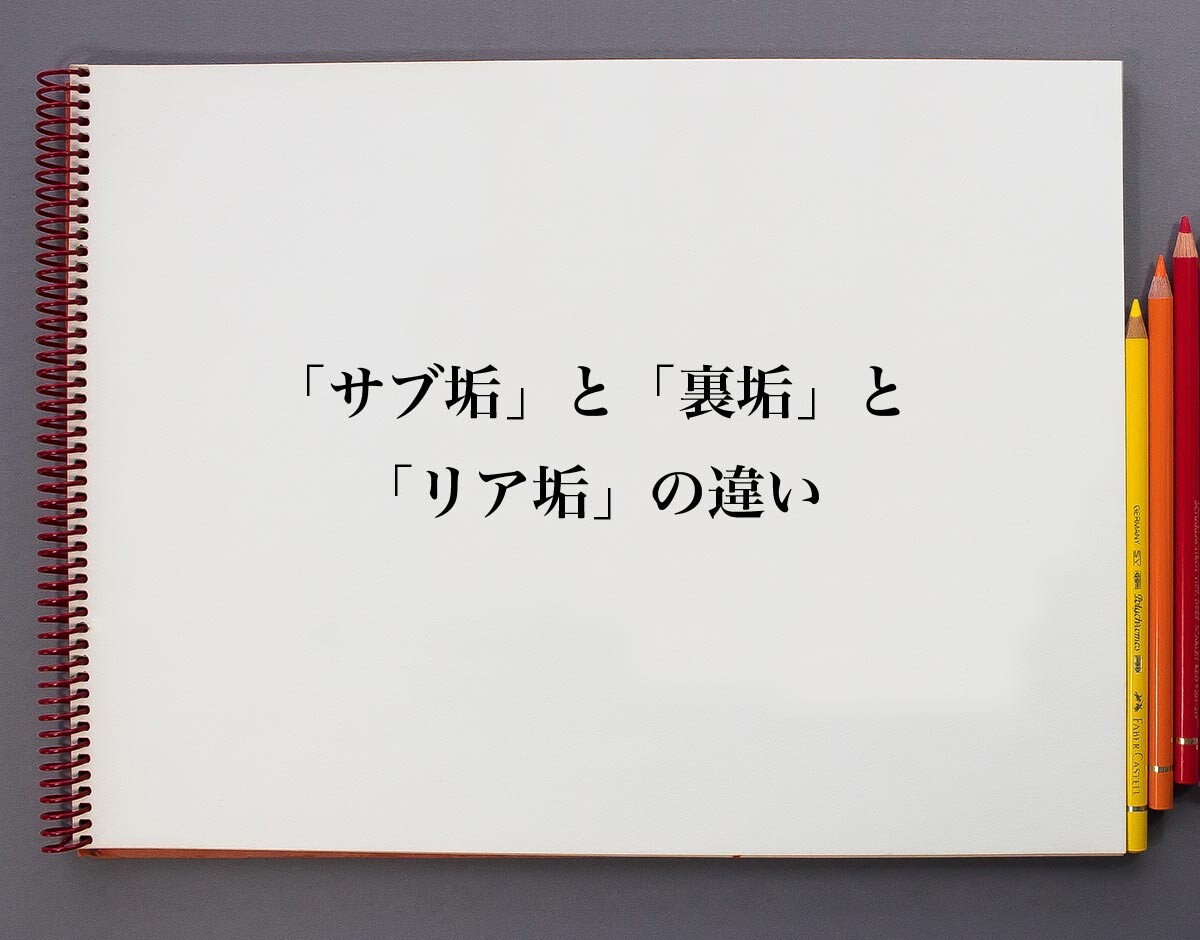 「サブ垢」と「裏垢」と
「リア垢」の違い
GERMANY
Polychromos
FABER CASTELL